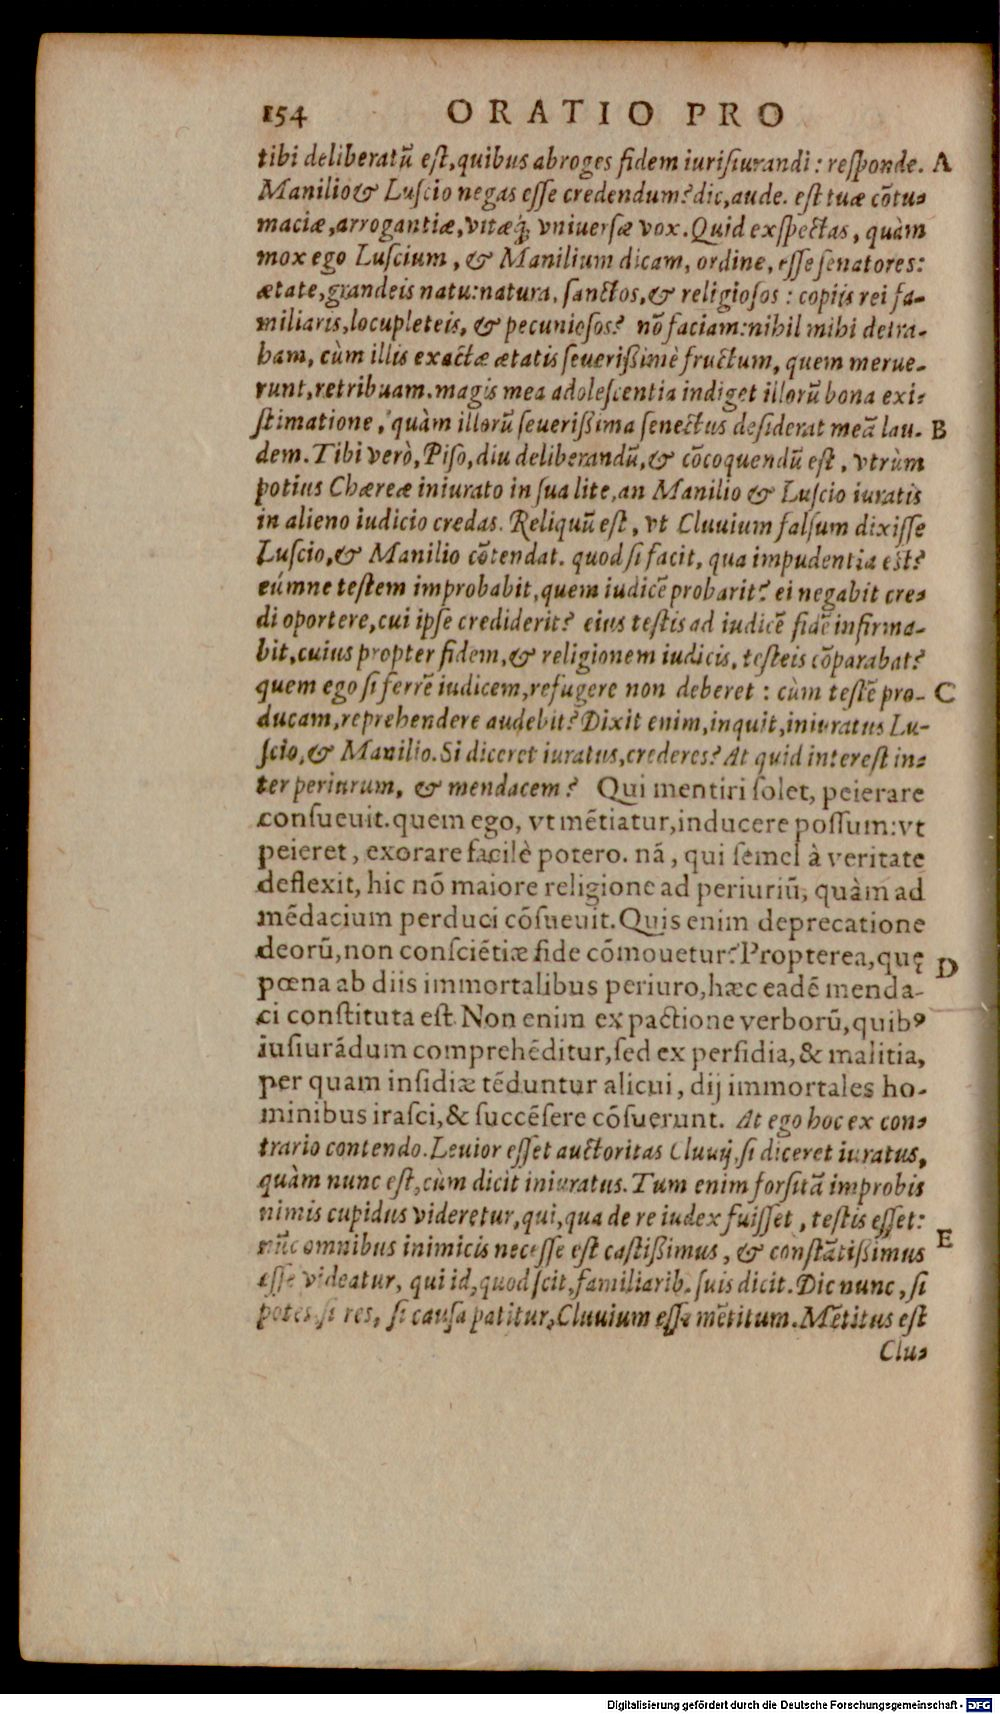 154 ORATIO PRO
tibi deliberatũ est, quibus abroges fidem iurisiurandi: responde. A
Manilio & Luscio negas esse credendum? dic, aude. est tuæ cõtu-
maciæ, arrogantiæ, vitæq́; vniuersæ vox. Quid exspectas, quàm
mox ego Luscium, & Manilium dicam, ordine, esse senatores:
ætate, grandeis natu: natura, sanctos, & religiosos: copiis rei fa-
miliaris, locupleteis, & pecuniosos? nõ faciam: nihil mihi detra-
ham, cùm illis exactæ ætatis seuerißimè fructum, quem merue-
runt, retribuam. magis mea adolescentia indiget illorũ bona exi-
stimatione, quàm illorũ seuerißima senectus desiderat meã lau- B
dem. Tibi verò, Piso, diu deliberandũ, & cõcoquendũ est, vtrùm
potius Chæreæ iniurato in sua lite, an Manilio & Luscio iuratis
in alieno iudicio credas. Reliquũ est, vt Cluuium falsum dixisse
Luscio, & Manilio cõtendat. quod si facit, qua impudentia est?
eúmne testem improbabit, quem iudicẽ probarit? ei negabit cre-
di oportere, cui ipse crediderit? eius testis ad iudicẽ fidẽ infirma-
bit, cuius propter fidem, & religionem iudicis, testeis cõparabat?
quem ego si ferrẽ iudicem, refugere non deberet: cùm testẽ pro- C
ducam, reprehendere audebit? Dixit enim, inquit, iniuratus Lu-
scio, & Manilio. Si diceret iuratus, crederes? At quid interest in-
ter periurum, & mendacem? Qui mentiri solet, peierare
consueuit. quem ego, vt mẽtiatur, inducere possum: vt
peieret, exorare facilè potero. nã, qui semel à veritate
deflexit, hic nõ maiore religione ad periuriũ, quàm ad
mẽdacium perduci cõsueuit. Quis enim deprecatione
deorũ, non consciẽtiæ fide cõmouetur? Propterea, quę D
pœna ab diis immortalibus periuro, hæc eadẽ menda-
ci constituta est. Non enim ex pactione verborũ, quibꝰ
iusiurãdum comprehẽditur, sed ex perfidia, & malitia,
per quam insidiæ tẽduntur alicui, dij immortales ho-
minibus irasci, & succẽsere cõsuerunt. At ego hoc ex con-
trario contendo. Leuior esset auctoritas Cluuij, si diceret iuratus,
quàm nunc est, cùm dicit iniuratus. Tum enim forsitã improbis
nimis cupidus videretur, qui, qua de re iudex fuisset, testis esset:
nũc omnibus inimicis necesse est castißimus, & constãtißimus E
esse videatur, qui id, quod scit, familiarib. suis dicit. Dic nunc, si
potes, si res, si causa patitur, Cluuium esse mẽtitum. Mẽtitus est
Clu-
Digitalisierung gefördert durch die Deutsche Forschungsgemeinschaft - DFG